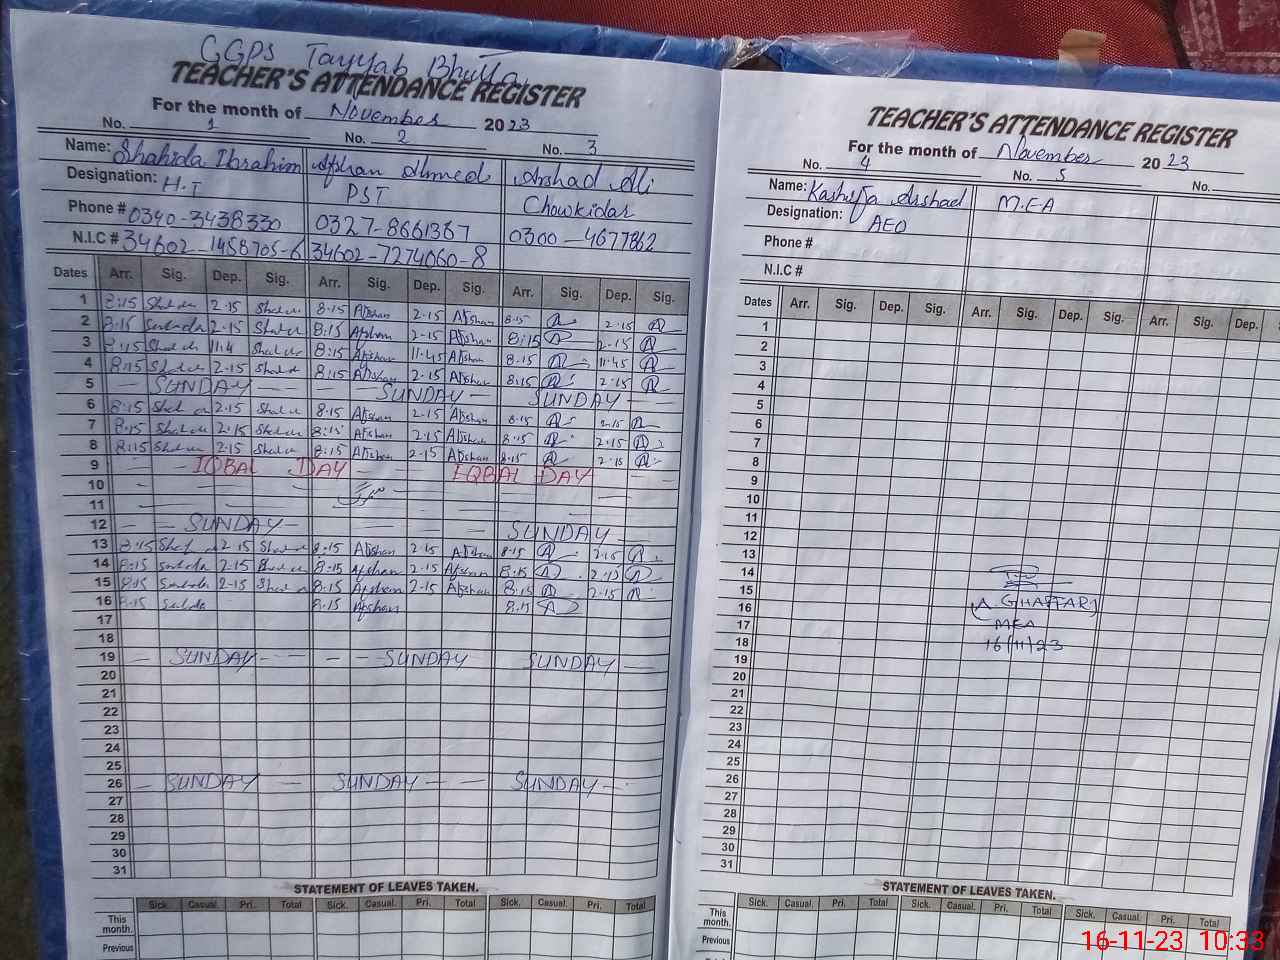 GGPS Tayyab Bhutta
TEACHER'S ATTENDANCE REGISTER
For the month of November 2023
No. 1 No. 2 No. 3
Name: Shahida Ibrahim Afshan Ahmed Arshad Ali
Designation: H.T PST Chowkidar
Phone # 0340-3438330 0327-8661367 0300-4677862
N.I.C # 34602-1458705-6 34602-7274060-8
Dates Arr. Sig. Dep. Sig. Arr. Sig. Dep. Sig. Arr. Sig. Dep. Sig.
1 8:15 2.15 8.15 Afshan 2.15 Afshan 8.15 2.15
2 8:15 2.15 8:15 Afshan 2.15 Afshan 8:15 2.15
3 8:15 11.4 8:15 Afshan 11.45 Afshan 8.15 11.45
4 8:15 2.15 8:15 Afshan 2.15 Afshan 8.15 2.15
5 SUNDAY SUNDAY SUNDAY
6 8:15 2.15 8.15 Afshan 2.15 Afshan 8.15 2.15
7 8.15 2.15 8:15 Afshan 2.15 Afshan 8.15 2.15
8 8:15 2.15 8.15 Afshan 2.15 Afshan 8.15 2.15
9 IQBAL DAY IQBAL DAY
10
11
12 SUNDAY SUNDAY
13 8:15 2.15 8:15 Afshan 2.15 Afshan 8.15 2.15
14 8:15 2.15 8:15 Afshan 2.15 Afshan 8:15 2.15
15 8:15 2-15 8.15 Afshan 2.15 Afshan 8.15 2.15
16 8.15 8.15 Afshan 8.15
17
18
19 SUNDAY SUNDAY SUNDAY
20
21
22
23
24
25
26 SUNDAY SUNDAY SUNDAY
27
28
29
30
31
STATEMENT OF LEAVES TAKEN.
Sick. Casual. Pri. Total Sick. Casual. Pri. Total Sick. Casual. Pri. Total
This month.
Previous
TEACHER'S ATTENDANCE REGISTER
For the month of November 2023
No. 4 No. 5 No.
Name: Kashifa Arshad M.E.A
Designation: AEO
Phone #
N.I.C #
Dates Arr. Sig. Dep. Sig. Arr. Sig. Dep. Sig. Arr. Sig. Dep.
1
2
3
4
5
6
7
8
9
10
11
12
13
14
15
16 (A. GHAFFAR)
17 MEA
18 16/11/23
19
20
21
22
23
24
25
26
27
28
29
30
31
STATEMENT OF LEAVES TAKEN.
Sick. Casual. Pri. Total Sick. Casual. Pri. Total Sick. Casual. Pri. Total
This month.
Previous
16-11-23 10:33